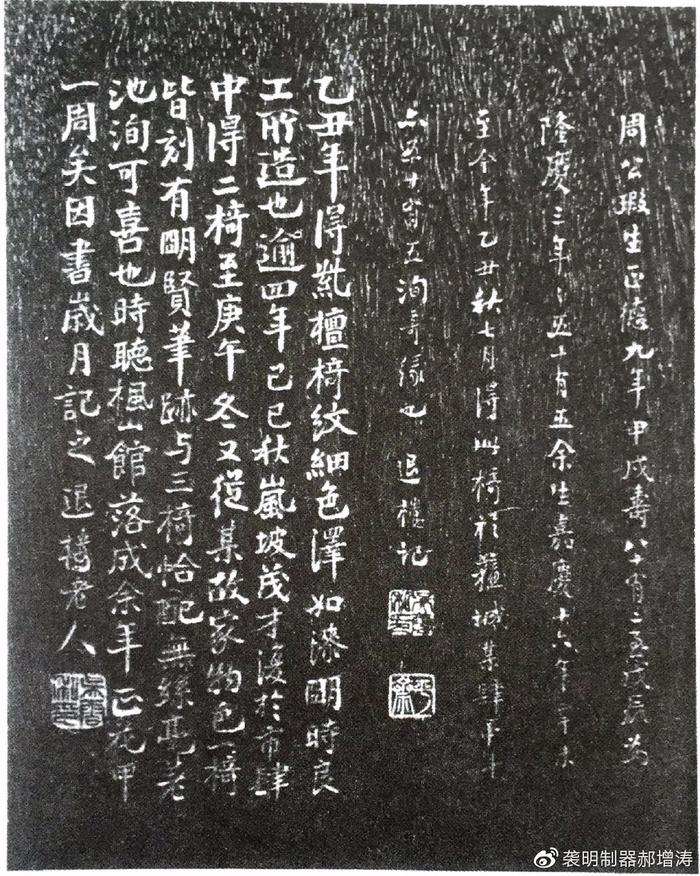 周公瑕生正德九年甲戌壽八十有二至戊辰為
隆慶三年〻五十有五余生嘉慶十六年辛未
至今年乙丑秋七月得此椅於蘇城某肆年
亦五十有五洵奇緣也退樓記
乙丑年得紫檀椅紋細色澤如漆朙時良
工所造也逾四年己巳秋嵐坡茂才復於市肆
中得二椅至庚午冬又從某故家物色一椅
皆刻有朙賢筆跡与三椅恰配無絲毫差
池洵可喜也時聽楓山館落成余年正花甲
一周矣因書歲月記之退樓老人
袭明制器郝增涛